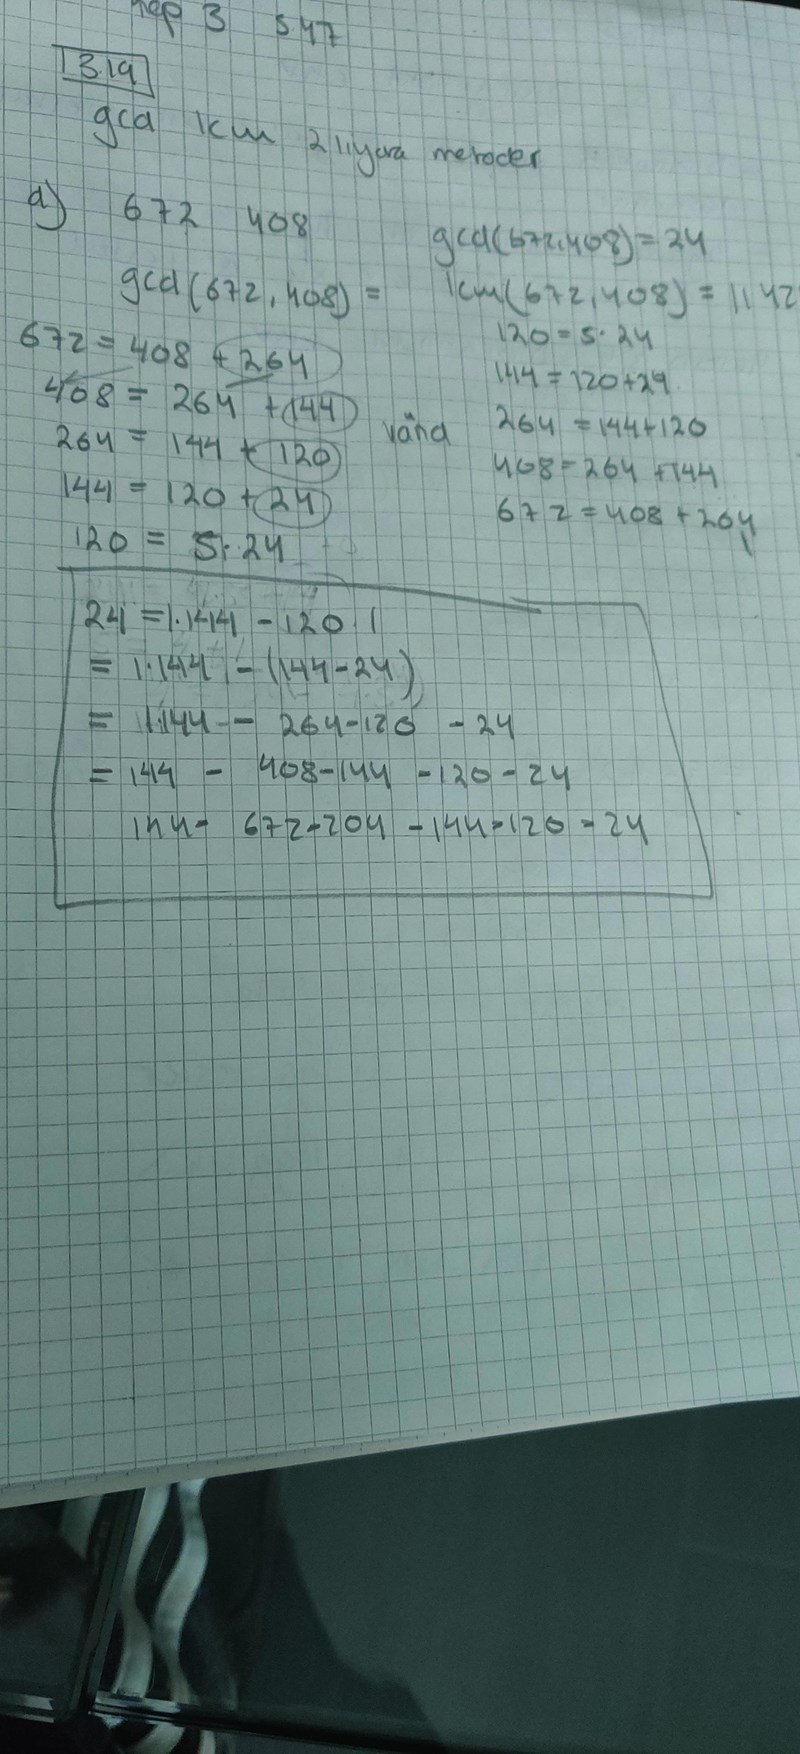 kap 3 s.47
3.19
gcd lcm 2 olika metoder
a) 672 408
gcd(672,408) =
672 = 408 + 264
408 = 264 + 144
264 = 144 + 120
144 = 120 + 24
120 = 5·24
gcd(672,408) = 24
lcm(672,408) = 1142
120 = 5·24
144 = 120+24
vänd 264 = 144+120
408 = 264 + 144
672 = 408 + 264
24 = 1·144 - 120·1
= 1·144 - (144-24)
= 1·144 - 264-120 - 24
= 144 - 408-144 - 120 - 24
144- 672-204 - 144-120 - 24